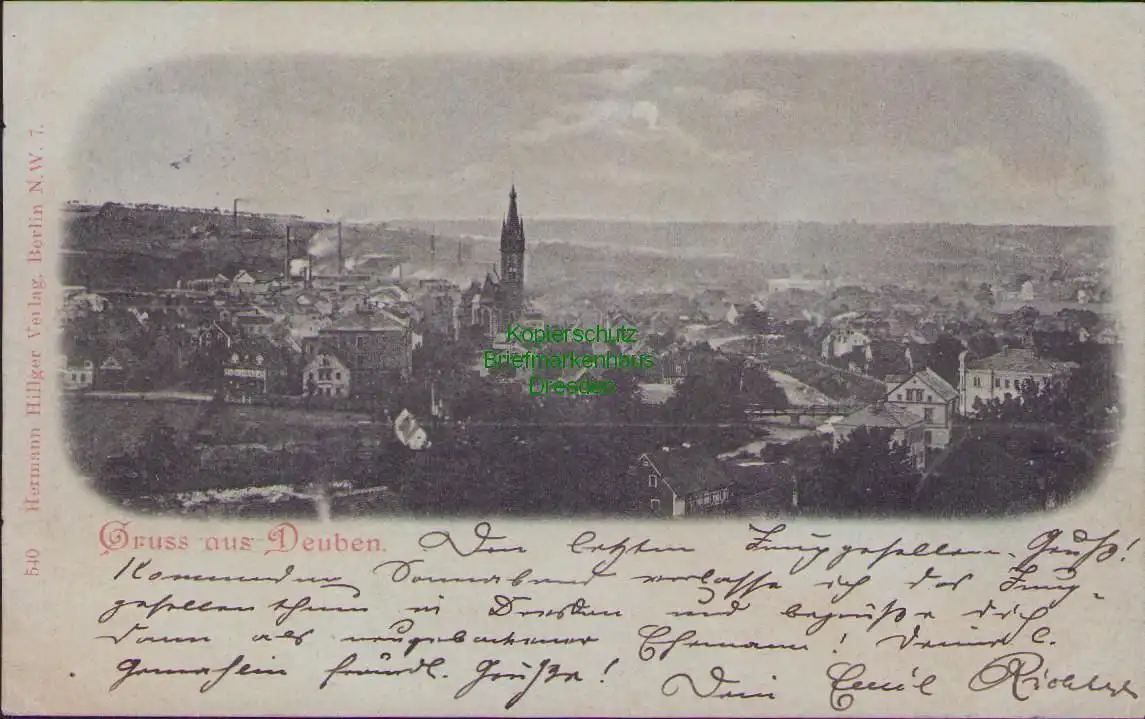 540 Hermann Hillger Verlag, Berlin N.W. 7.
Kopierschutz
Briefmarkenhaus
Dresden
Gruss aus Deuben.
Den letzten Junggesellen-Gruß!
Kommenden Sonnabend verlasse ich das Jung-
gesellenthum in Dresden und begrüße dich
dann als neugebackener Ehemann! Deiner l.
Gemahlin freundl. Grüße! Dein Emil Richter